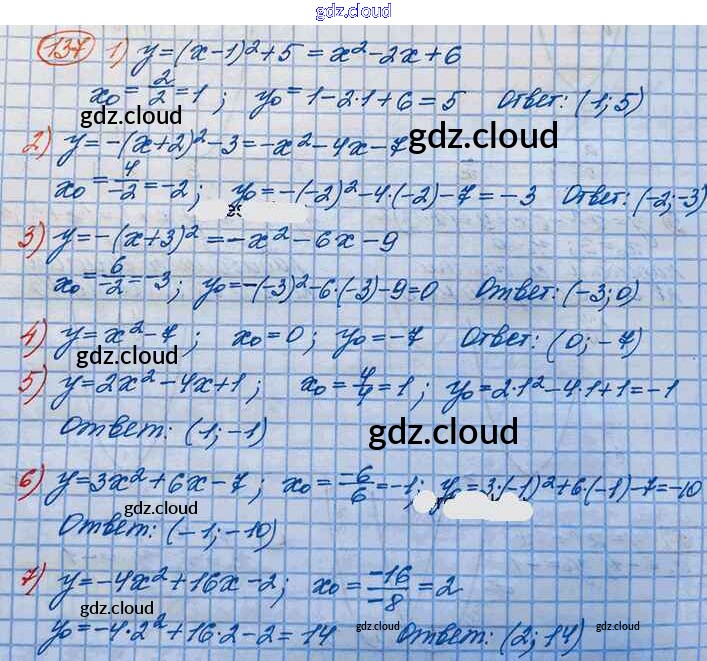 gdz.cloud
137 1) y=(x-1)²+5 = x²-2x+6
x₀ = 2/2 = 1; y₀ = 1-2·1+6 = 5 Ответ: (1; 5)
gdz.cloud gdz.cloud
2) y=-(x+2)²-3=-x²-4x-7
x₀ = 4/-2 = -2; y₀=-(-2)²-4·(-2)-7=-3 Ответ: (-2;-3)
3) y=-(x+3)² = -x²-6x-9
x₀ = 6/-2 = -3; y₀=-(-3)²-6·(-3)-9=0 Ответ: (-3; 0)
4) y=x²-7; x₀=0; y₀=-7 Ответ: (0; -7)
gdz.cloud
5) y=2x²-4x+1; x₀=4/4=1; y₀=2·1²-4·1+1=-1
Ответ: (1; -1)
gdz.cloud
6) y=3x²+6x-7; x₀=-6/6=-1; y₀=3·(-1)²+6·(-1)-7=-10
gdz.cloud
Ответ: (-1; -10)
7) y=-4x²+16x-2; x₀=-16/-8=2
gdz.cloud
y₀=-4·2²+16·2-2=14 Ответ: (2; 14)
gdz.cloud gdz.cloud gdz.cloud